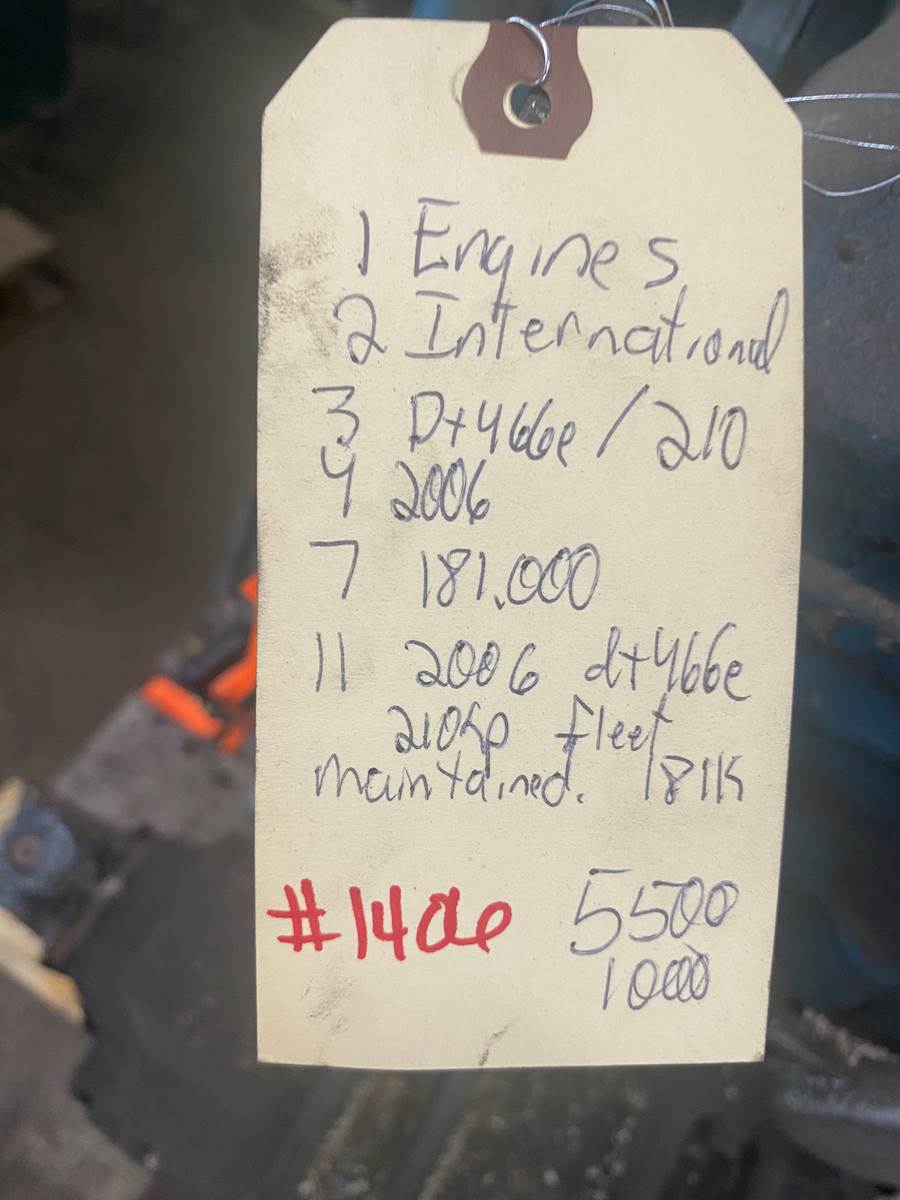 1 Engines
2 International
3 Dt466e / 210
4 2006
7 181.000
11 2006 dt466e
210hp fleet
maintained. 181K
5500
1000